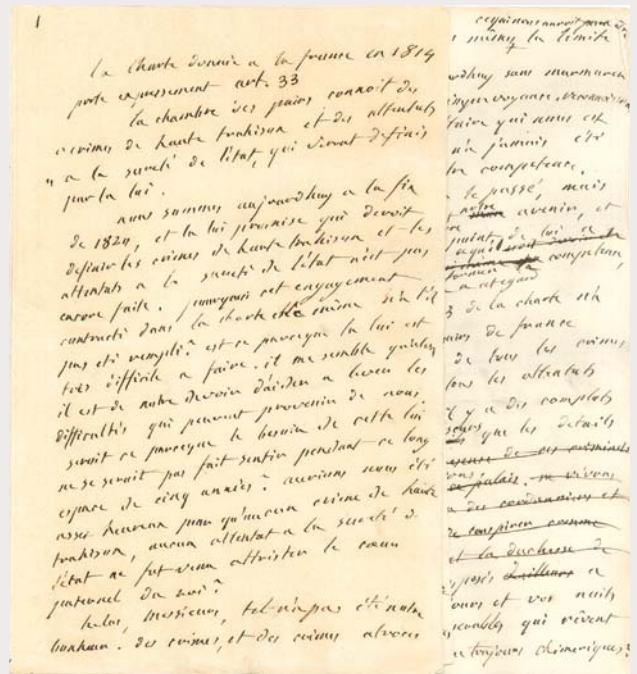 1
la Charte donnée a la france en 1814
porte expressement art. 33
la chambre des pairs connoit des
crimes de haute trahison et des attentats
" a la sureté de l'état, qui seront definis
par la loi.
nous sommes aujourdhuy a la fin
de 1820, et la loi promise qui devoit
definir les crimes de haute trahison et les
attentats a la sureté de l'état n'est pas
encore faite. pourquoi cet engagement
contracté dans la charte elle même n'a t'il
pas eté rempli? est ce parceque la loi est
très difficile a faire. il me semble qu'alors
il est de notre devoir d'aider a lever les
difficultés qui peuvent provenir de nous.
seroit ce parceque le besoin de cette loi
ne se seroit pas fait sentir pendant ce long
espace de cinq années? aurions nous été
assez heureux pour qu'aucun crime de haute
trahison, aucun attentat a la sureté de
l'état ne fut venu attrister le cœur
paternel du roi?
helas, messieurs, tel n'a pas été notre
bonheur. des crimes, et des crimes atroces
la limite
sans murmurer
qui nous est
n'a jamais été
competence.
le passé, mais
notre avenir, et
point de loi a
competence,
3 de la charte n'a
pairs de france
de tous les crimes
tous les attentats
il y a des complots
que les details
de ces criminels
palais. ne vivons
des cordonniers et
conspirer comme
et la duchesse de
exposés d'ailleurs a
jours et vos nuits
qui rêvent
toujours chimeriques?